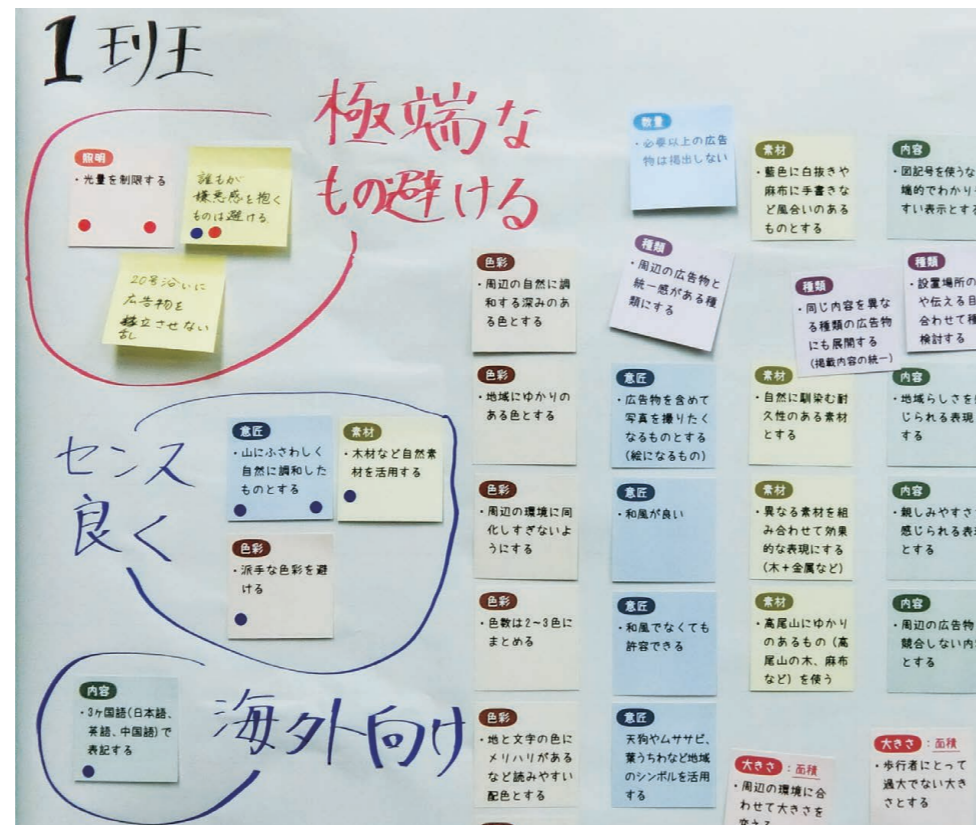 1班
極端な
もの避ける
照明
・光量を制限する
誰もが
嫌悪感を抱く
ものは避ける
20号沿いに
広告物を
乱立させない
センス
良く
意匠
・山にふさわしく
自然に調和した
ものとする
素材
・木材など自然素
材を活用する
色彩
・派手な色彩を避
ける
海外向け
内容
・3ヶ国語(日本語、
英語、中国語)で
表記する
色彩
・周辺の自然に調
和する深みのあ
る色とする
色彩
・地域にゆかりの
ある色とする
色彩
・周辺の環境に同
化しすぎないよ
うにする
色彩
・色数は2~3色に
まとめる
色彩
・地と文字の色に
メリハリがある
など読みやすい
配色とする
数量
・必要以上の広告
物は掲出しない
種類
・周辺の広告物と
統一感がある種
類にする
意匠
・広告物を含めて
写真を撮りたく
なるものとする
(絵になるもの)
意匠
・和風が良い
意匠
・和風でなくても
許容できる
意匠
天狗やムササビ、
葉うちわなど地域
のシンボルを活用
する
素材
・藍色に白抜きや
麻布に手書きな
ど風合いのある
ものとする
種類
・同じ内容を異な
る種類の広告物
にも展開する
(掲載内容の統一)
素材
・自然に馴染む耐
久性のある素材
とする
素材
・異なる素材を組
み合わせて効果
的な表現にする
(木+金属など)
素材
・高尾山にゆかり
のあるもの(高
尾山の木、麻布
など)を使う
大きさ:面積
・周辺の環境に合
わせて大きさを
変える
内容
・図記号を使うな
端的でわかり
すい表示とす
種類
・設置場所の
や伝える目
合わせて種
検討する
内容
・地域らしさを
じられる表現
する
内容
・親しみやすさ
感じられる表
とする
内容
・周辺の広告物
競合しない内
とする
大きさ:面積
・歩行者にとって
過大でない大き
さとする